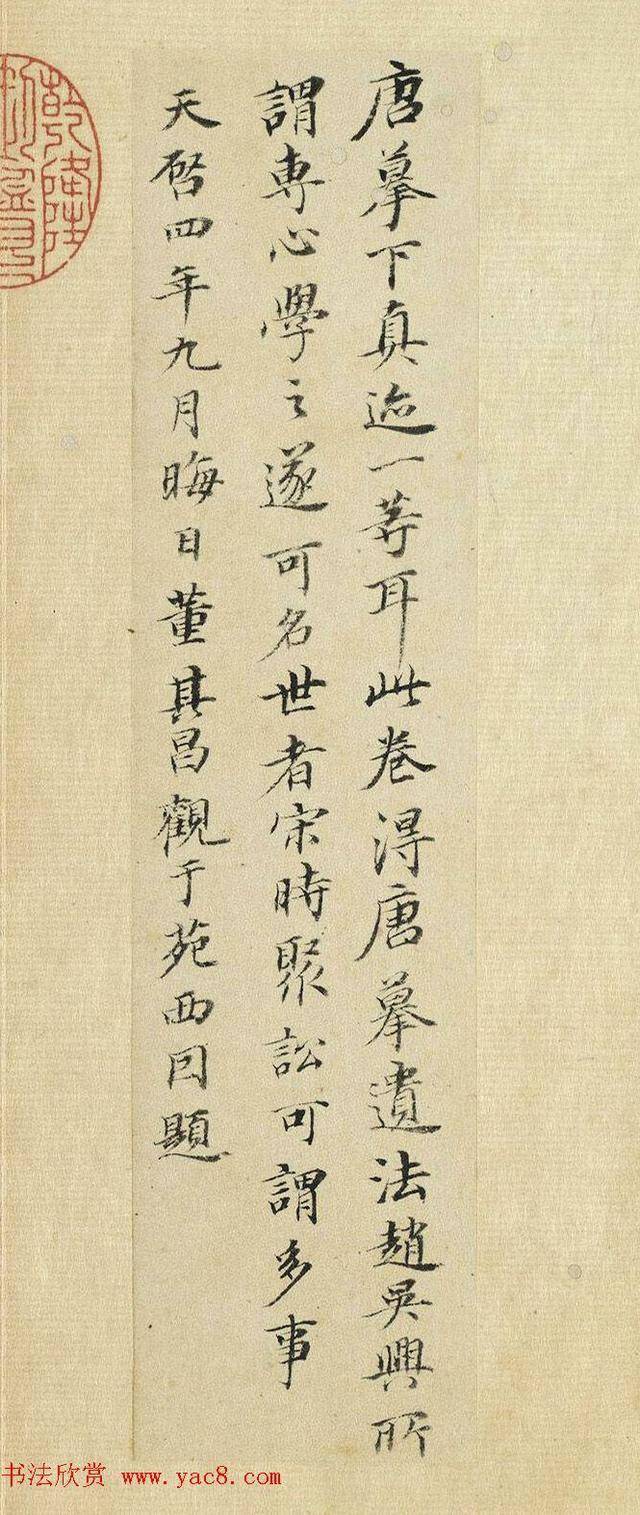 唐摹下真迹一等耳此卷得唐摹遺法趙吳興所
謂專心學之遂可名世者宋時聚訟可謂多事
天啓四年九月晦日董其昌觀于苑西因題
乾隆
书法欣赏 www.yac8.com